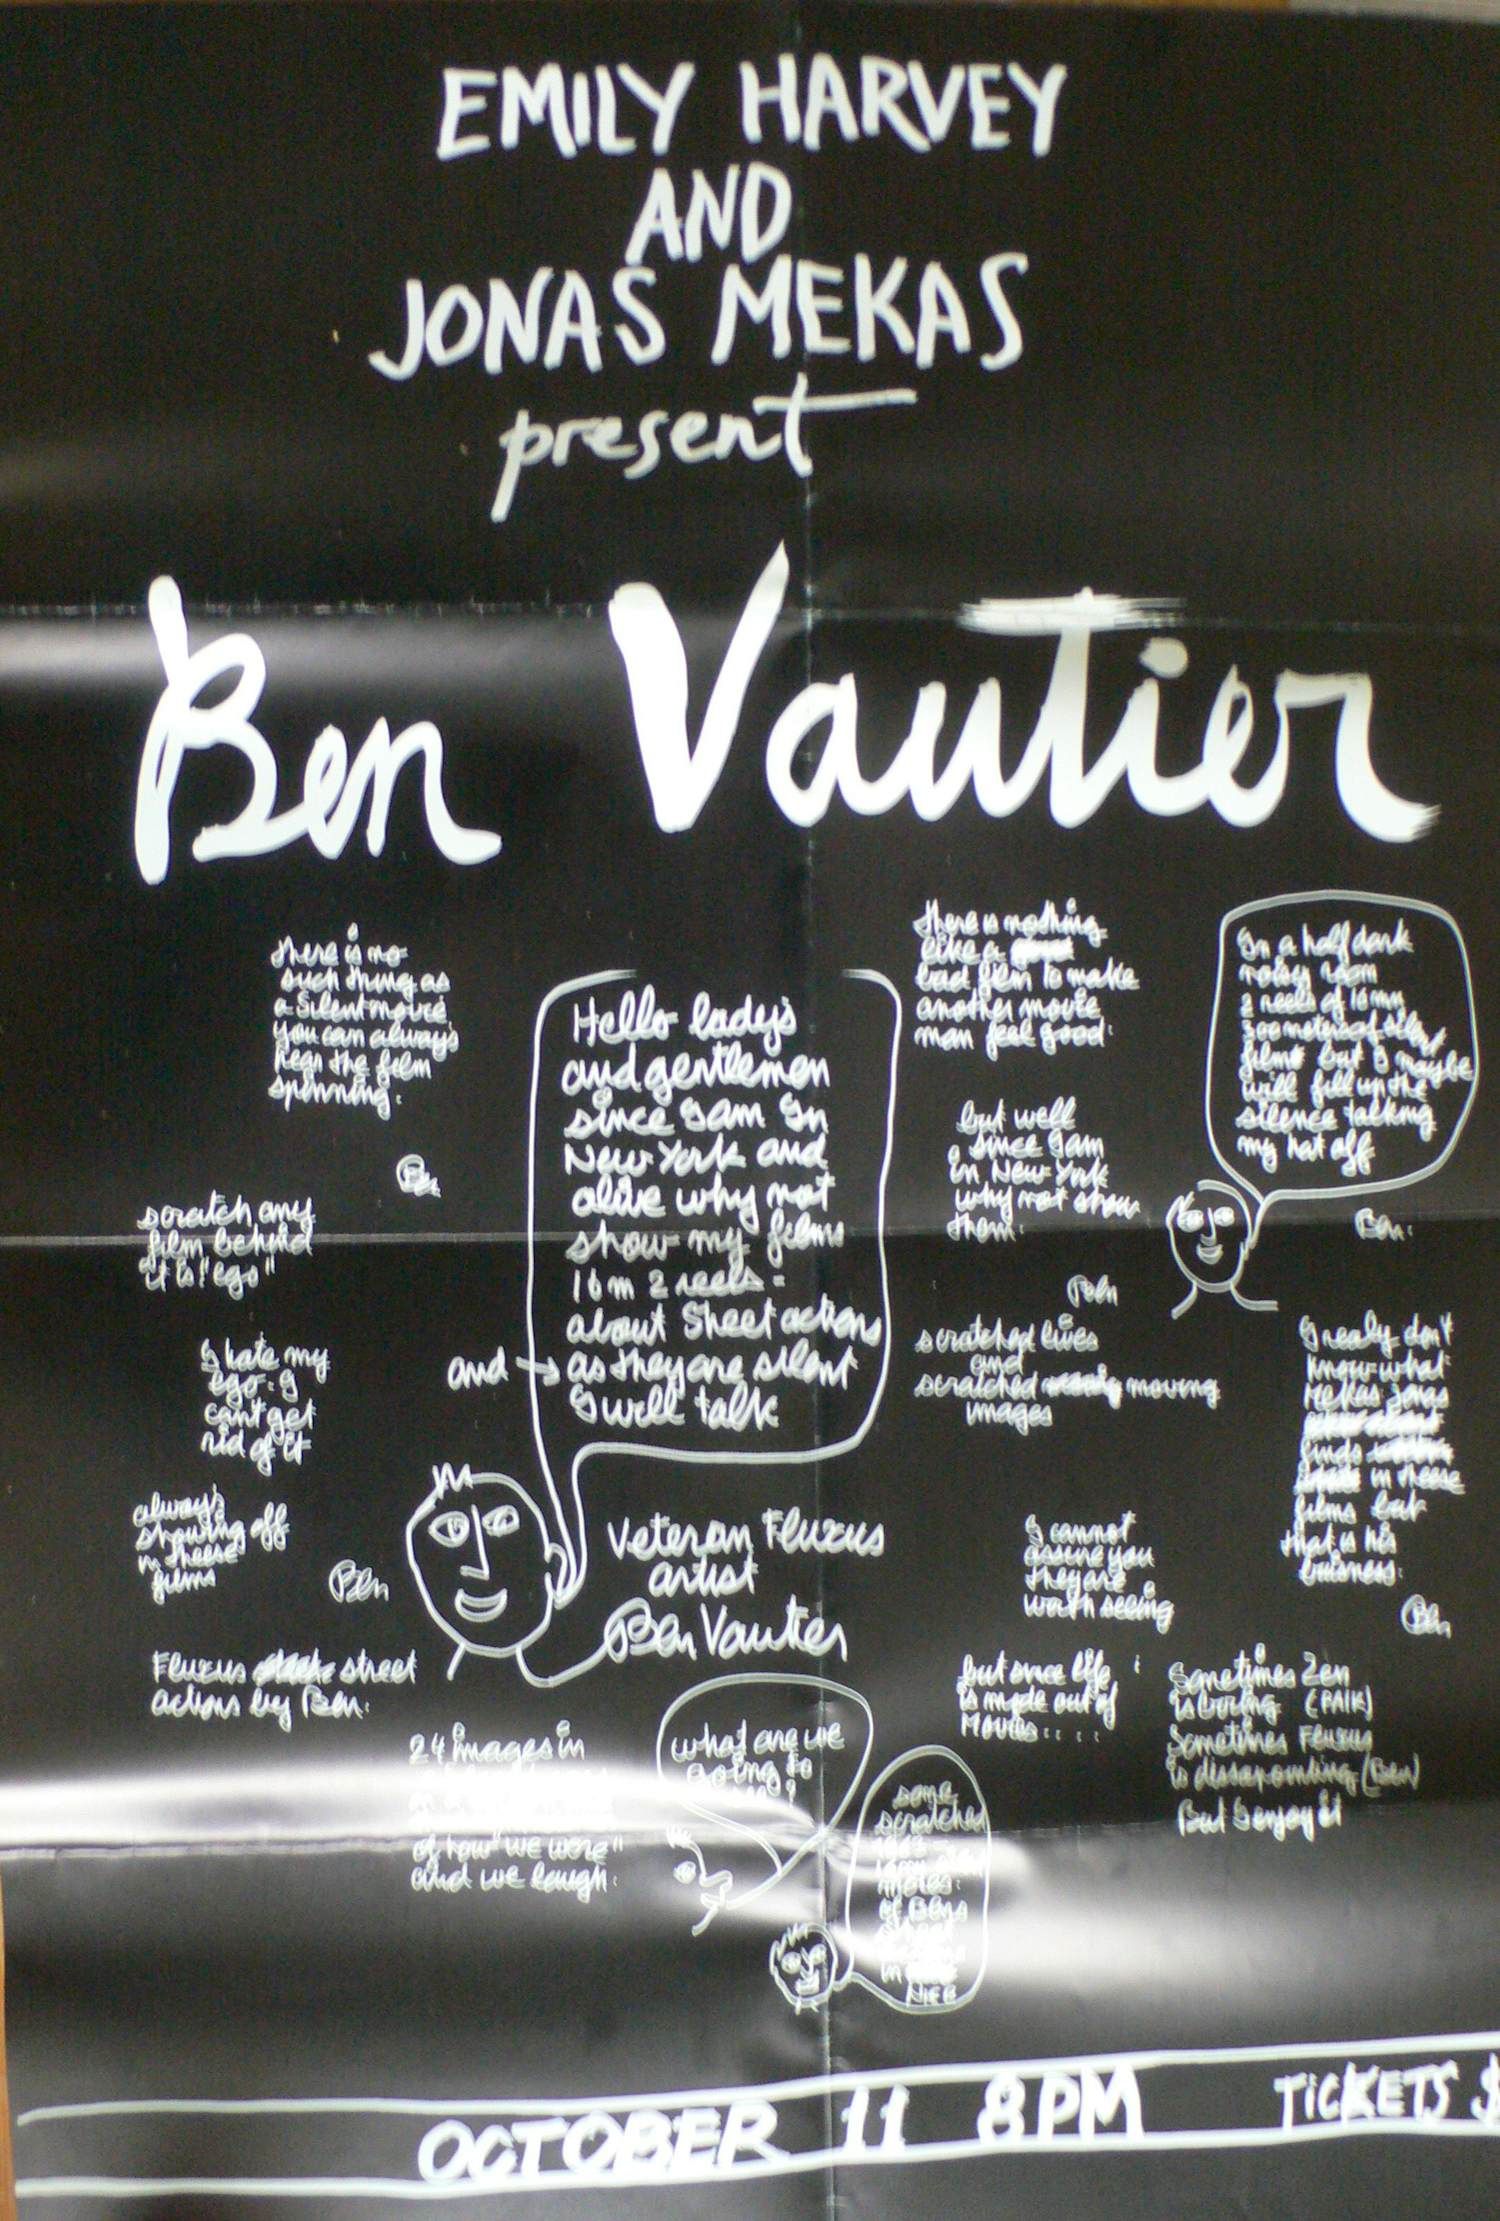 EMILY HARVEY
AND
JONAS MEKAS
present
Ben Vautier
there is no
such thing as
a silent movie
you can always
hear the film
spinning.
Ben
scratch any
film behind
it is "ego"
I hate my
ego. I
can't get
rid of it
always
showing off
in theese
films
Ben
Fluxus street
actions by Ben.
Hello lady's
and gentlemen
since I am In
New York and
alive why not
show my films
16 m 2 reels =
about Street actions
and → as they are silent
I will talk
Veteran Fluxus
artist
Ben Vautier
there is nothing
like a
bad film to make
another movie
man feel good.
but well
since I am
in New York
why not show
them.
Ben
In a half dark
noisy room
2 reels of 16 mm
300 meters of silent
films but I maybe
will fill up the
silence talking
my hat off
Ben.
scratched lives
and
scratched moving
images
I realy don't
know what
Mekas Jonas
finds
in theese
films but
that is his
buisness.
Ben
I cannot
assure you
they are
worth seeing
but since life
is made out of
Movies....
Sometimes Zen
is boring (PAIK)
Sometimes Fluxus
is dissapointing (Ben)
But I enjoy it
24 images in
of how "we were"
and we laugh.
what are we
going to
some
scratched
of Bens
in
NICE
OCTOBER 11 8 PM TICKETS $